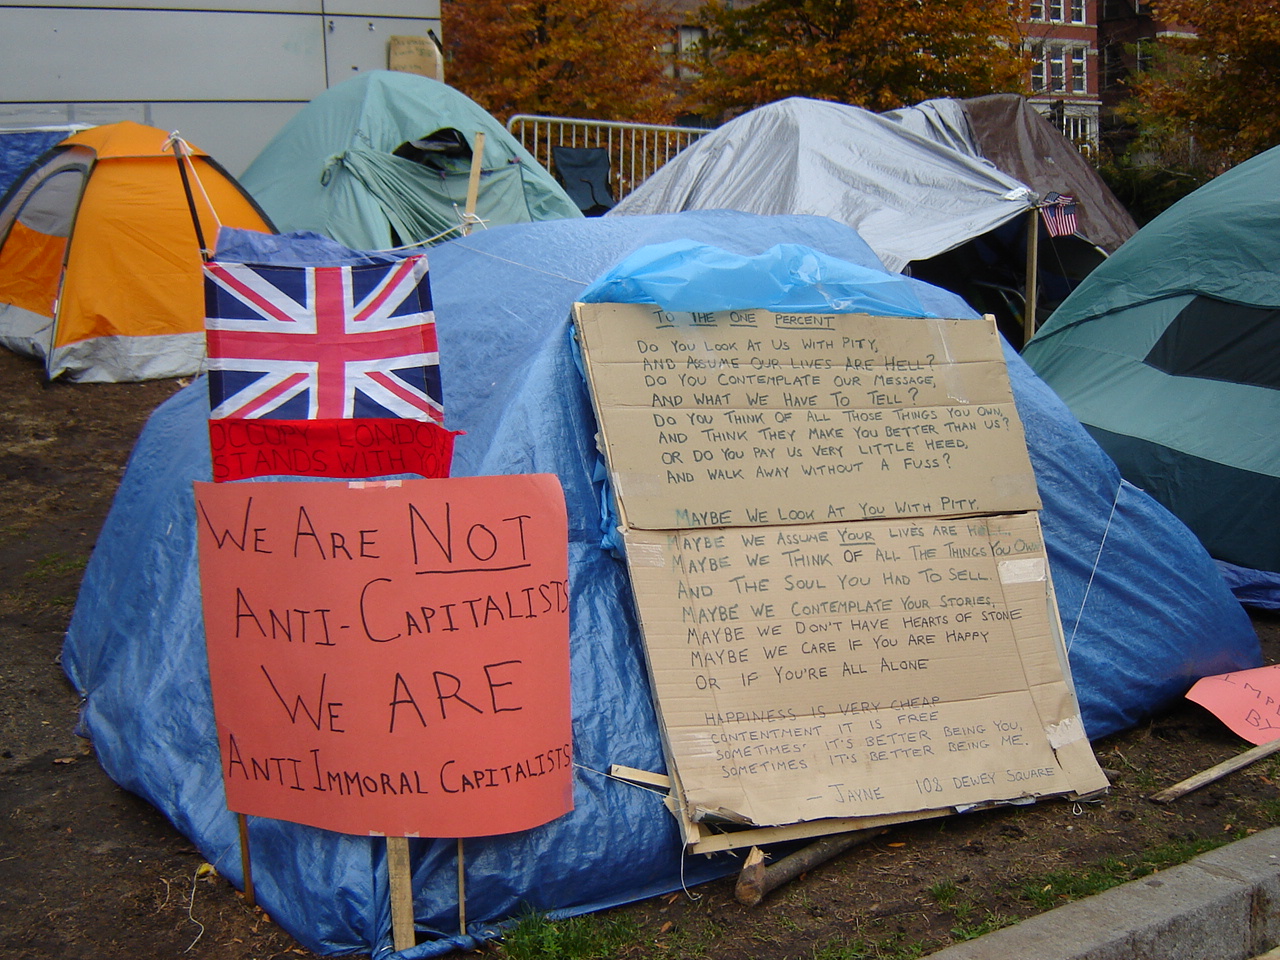 OCCUPY LONDON
STANDS WITH YOU
WE ARE NOT
ANTI-CAPITALISTS
WE ARE
ANTI IMMORAL CAPITALISTS
TO THE ONE PERCENT
DO YOU LOOK AT US WITH PITY,
AND ASSUME OUR LIVES ARE HELL?
DO YOU CONTEMPLATE OUR MESSAGE,
AND WHAT WE HAVE TO TELL?
DO YOU THINK OF ALL THOSE THINGS YOU OWN,
AND THINK THEY MAKE YOU BETTER THAN US?
OR DO YOU PAY US VERY LITTLE HEED,
AND WALK AWAY WITHOUT A FUSS?
MAYBE WE LOOK AT YOU WITH PITY.
MAYBE WE ASSUME YOUR LIVES ARE HELL.
MAYBE WE THINK OF ALL THE THINGS YOU OWN
AND THE SOUL YOU HAD TO SELL.
MAYBE WE CONTEMPLATE YOUR STORIES,
MAYBE WE DON'T HAVE HEARTS OF STONE
MAYBE WE CARE IF YOU ARE HAPPY
OR IF YOU'RE ALL ALONE
HAPPINESS IS VERY CHEAP
CONTENTMENT IT IS FREE
SOMETIMES IT'S BETTER BEING YOU,
SOMETIMES IT'S BETTER BEING ME.
— JAYNE 108 DEWEY SQUARE